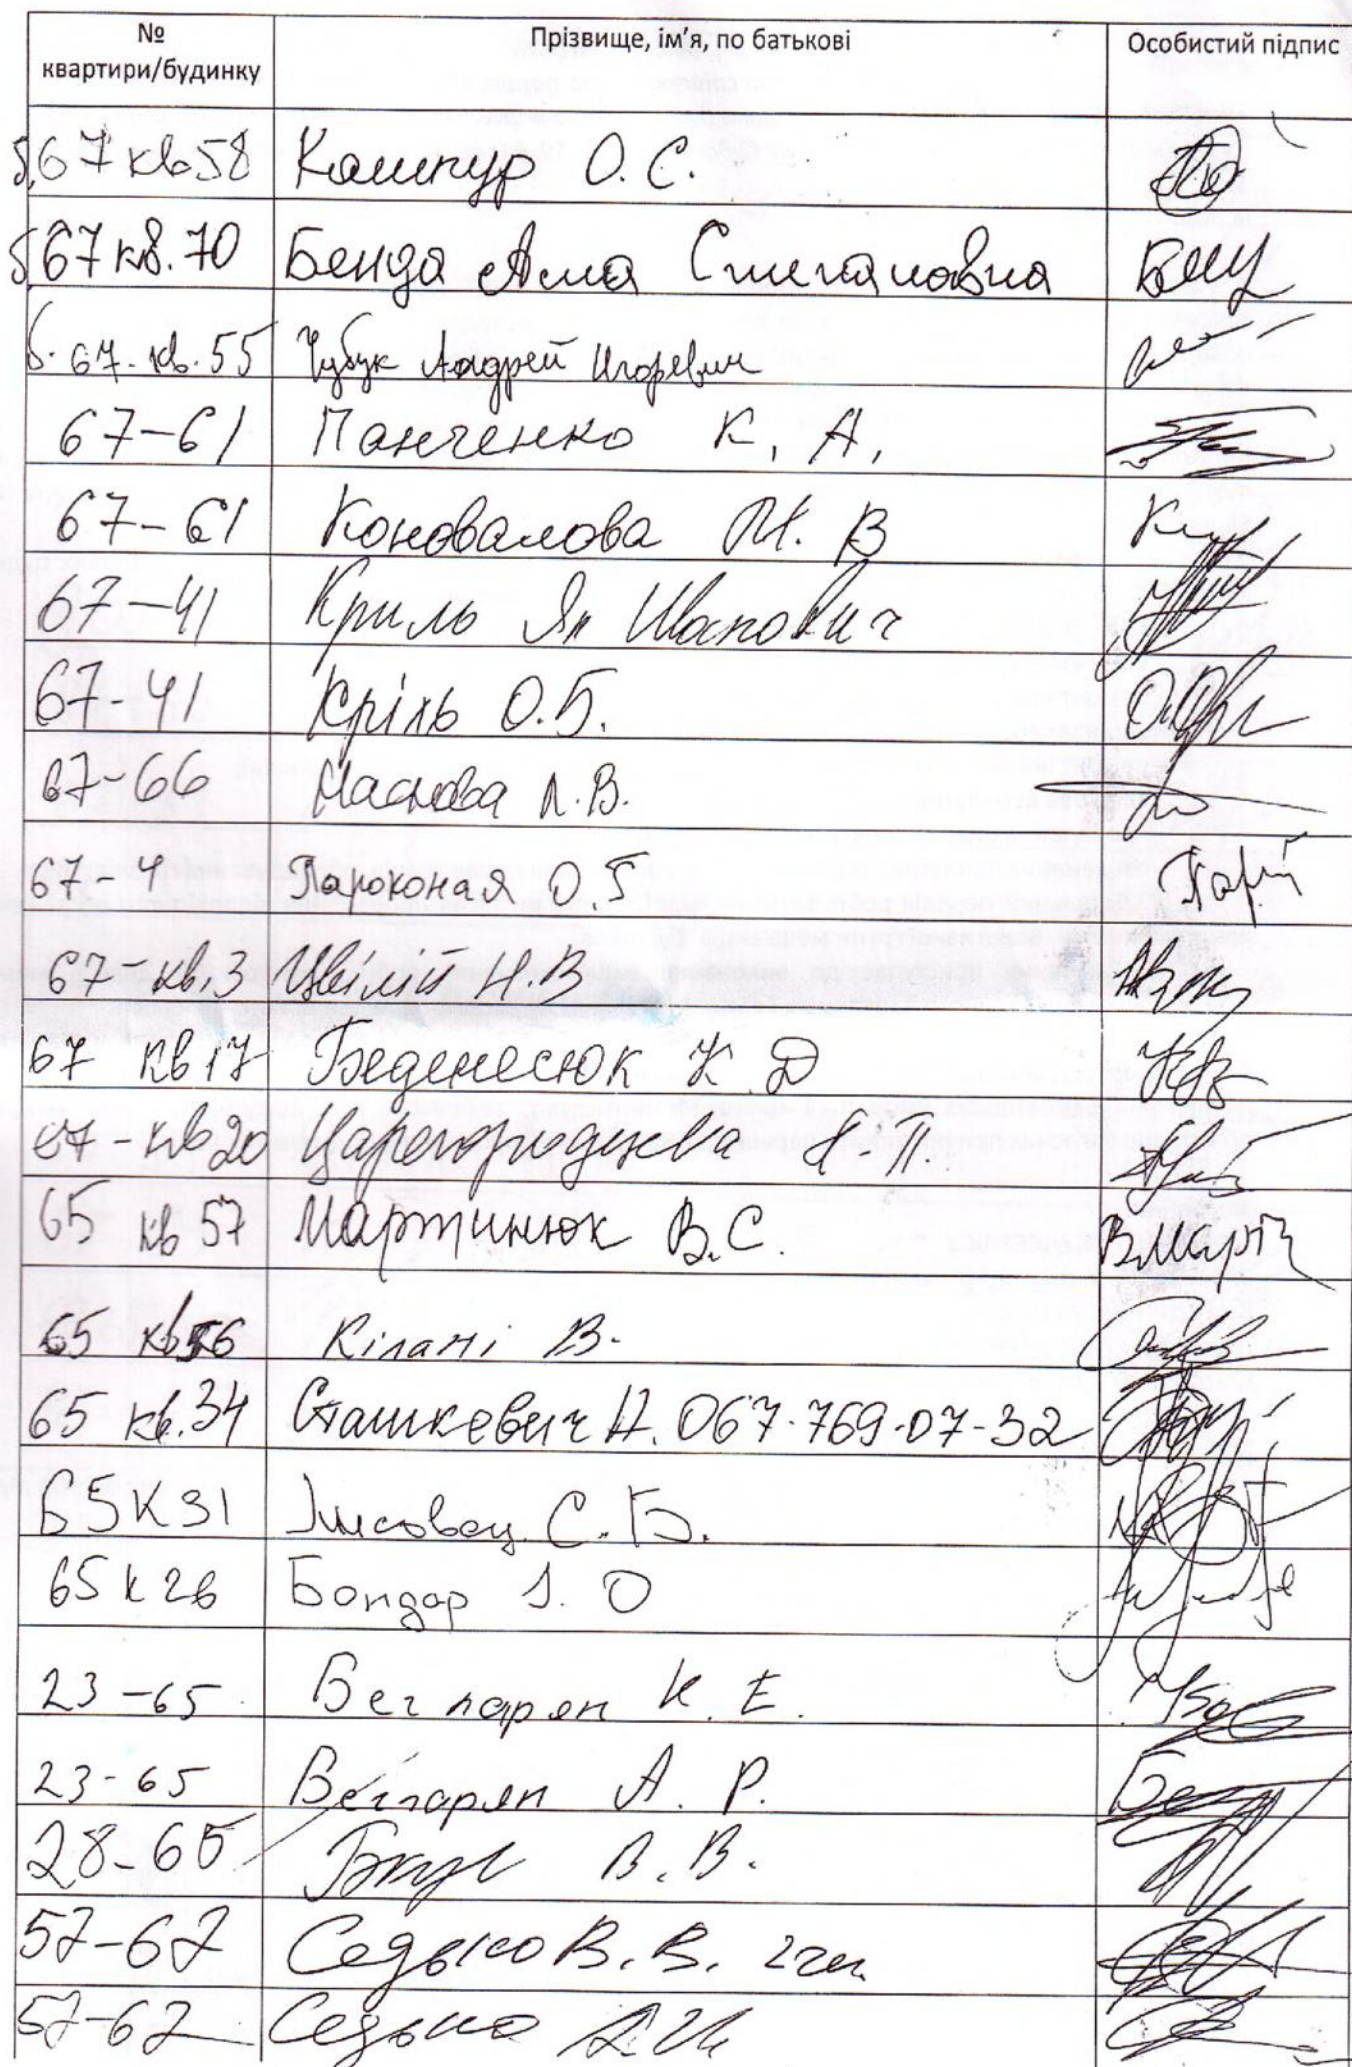 № квартири/будинку Прізвище, ім'я, по батькові Особистий підпис
б,67 кв58 Кашпур О.С.
б,67 кв.70 Бенда Степановна
б.67.кв.55 Чубук Андрей Игоревич
67-61 Панченко К.А.
67-61 Коновалова М.В
67-41 Криль Ян Иванович
67-41 Кріль О.Б.
67-66 Маслова Л.В.
67-4 О.Г.
67 кв.3 Цвілій Н.В
67 кв17 К.Д
67-кв20
65 кв 57 Мартинюк В.С.
65 кв56 Кілані В.
65 кв.34 Сташкевич Н. 067-769-07-32
65К31 Лисовец С.Б.
65к26 Бондар І.О
23-65 Бегларян К.Е.
23-65 Бегларян А.Р.
28-65 В.В.
57-67 Седько В.В.
57-67 Седько